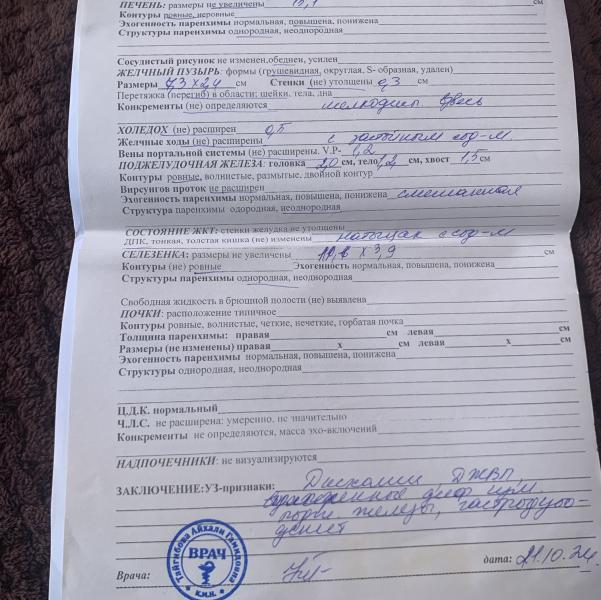 ПЕЧЕНЬ: размеры не увеличены см
Контуры ровные, неровные
Эхогенность паренхимы нормальная, повышена, понижена
Структуры паренхимы однородная, неоднородная
Сосудистый рисунок не изменен,обеднен, усилен
ЖЕЛЧНЫЙ ПУЗЫРЬ: формы (грушевидная, округлая, S- образная, удален)
Размеры 7,3 x 2,4 см Стенки (не) утолщены 0,3 см
Перетяжка (перегиб) в области: шейки, тела, дна
Конкременты (не) определяются мелкодисп. взвесь
ХОЛЕДОХ (не) расширен 0,5
Желчные ходы (не) расширены с застойным сод-м
Вены портальной системы (не) расширены. V.P- 1,2
ПОДЖЕЛУДОЧНАЯ ЖЕЛЕЗА: головка 2,0 см, тело 1,2 см, хвост 1,5 см
Контуры ровные, волнистые, размытые, двойной контур
Вирсунгов проток не расширен
Эхогенность паренхимы нормальная, повышена, понижена смешанная
Структура паренхимы одородная, неоднородная
СОСТОЯНИЕ ЖКТ: стенки желудка не утолщены
ДПК, тонкая, толстая кишка (не) изменены натощак с сод-м
СЕЛЕЗЕНКА: размеры не увеличены x 3,9 см
Контуры (не) ровные Эхогенность нормальная, повышена, понижена
Структуры паренхимы однородная, неоднородная
Свободная жидкость в брюшной полости (не) выявлена
ПОЧКИ: расположение типичное
Контуры ровные, волнистые, четкие, нечеткие, горбатая почка
Толщина паренхимы: правая см левая см
Размеры (не изменены) правая x см левая x см
Эхогенность паренхимы нормальная, повышена, понижена
Структуры однородная, неоднородная
Ц.Д.К. нормальный
Ч.Л.С. не расширена: умеренно, не значительно
Конкременты не определяются, масса эхо-включений
НАДПОЧЕЧНИКИ: не визуализируются
ЗАКЛЮЧЕНИЕ:УЗ-признаки: Дисхолии, ДЖВП,
диф. изм.
железы, гастродуо-
денит
Врача: дата: 21.10.24.
ВРАЧ
к.м.н.